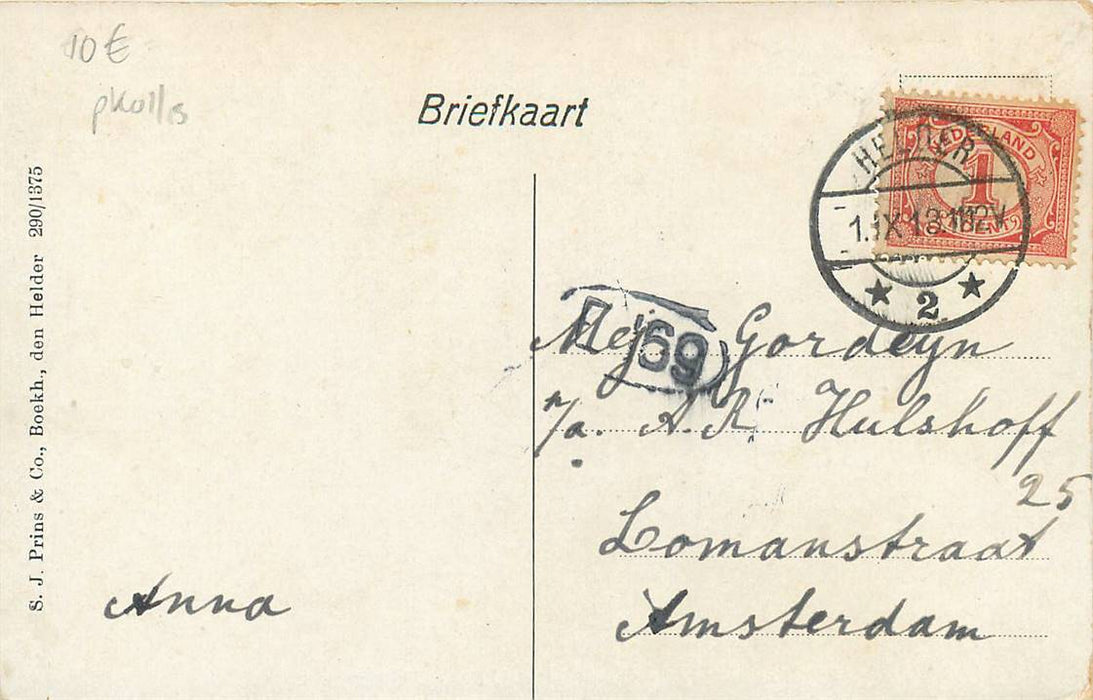 10 €
Briefkaart
NEDERLAND
1
HELDER
2
S. J. Prins & Co., Boekh., den Helder 290/1375
69
Mej. Gordeyn
p/a. A. R. Hulshoff
25
Lomanstraat
Amsterdam
Anna